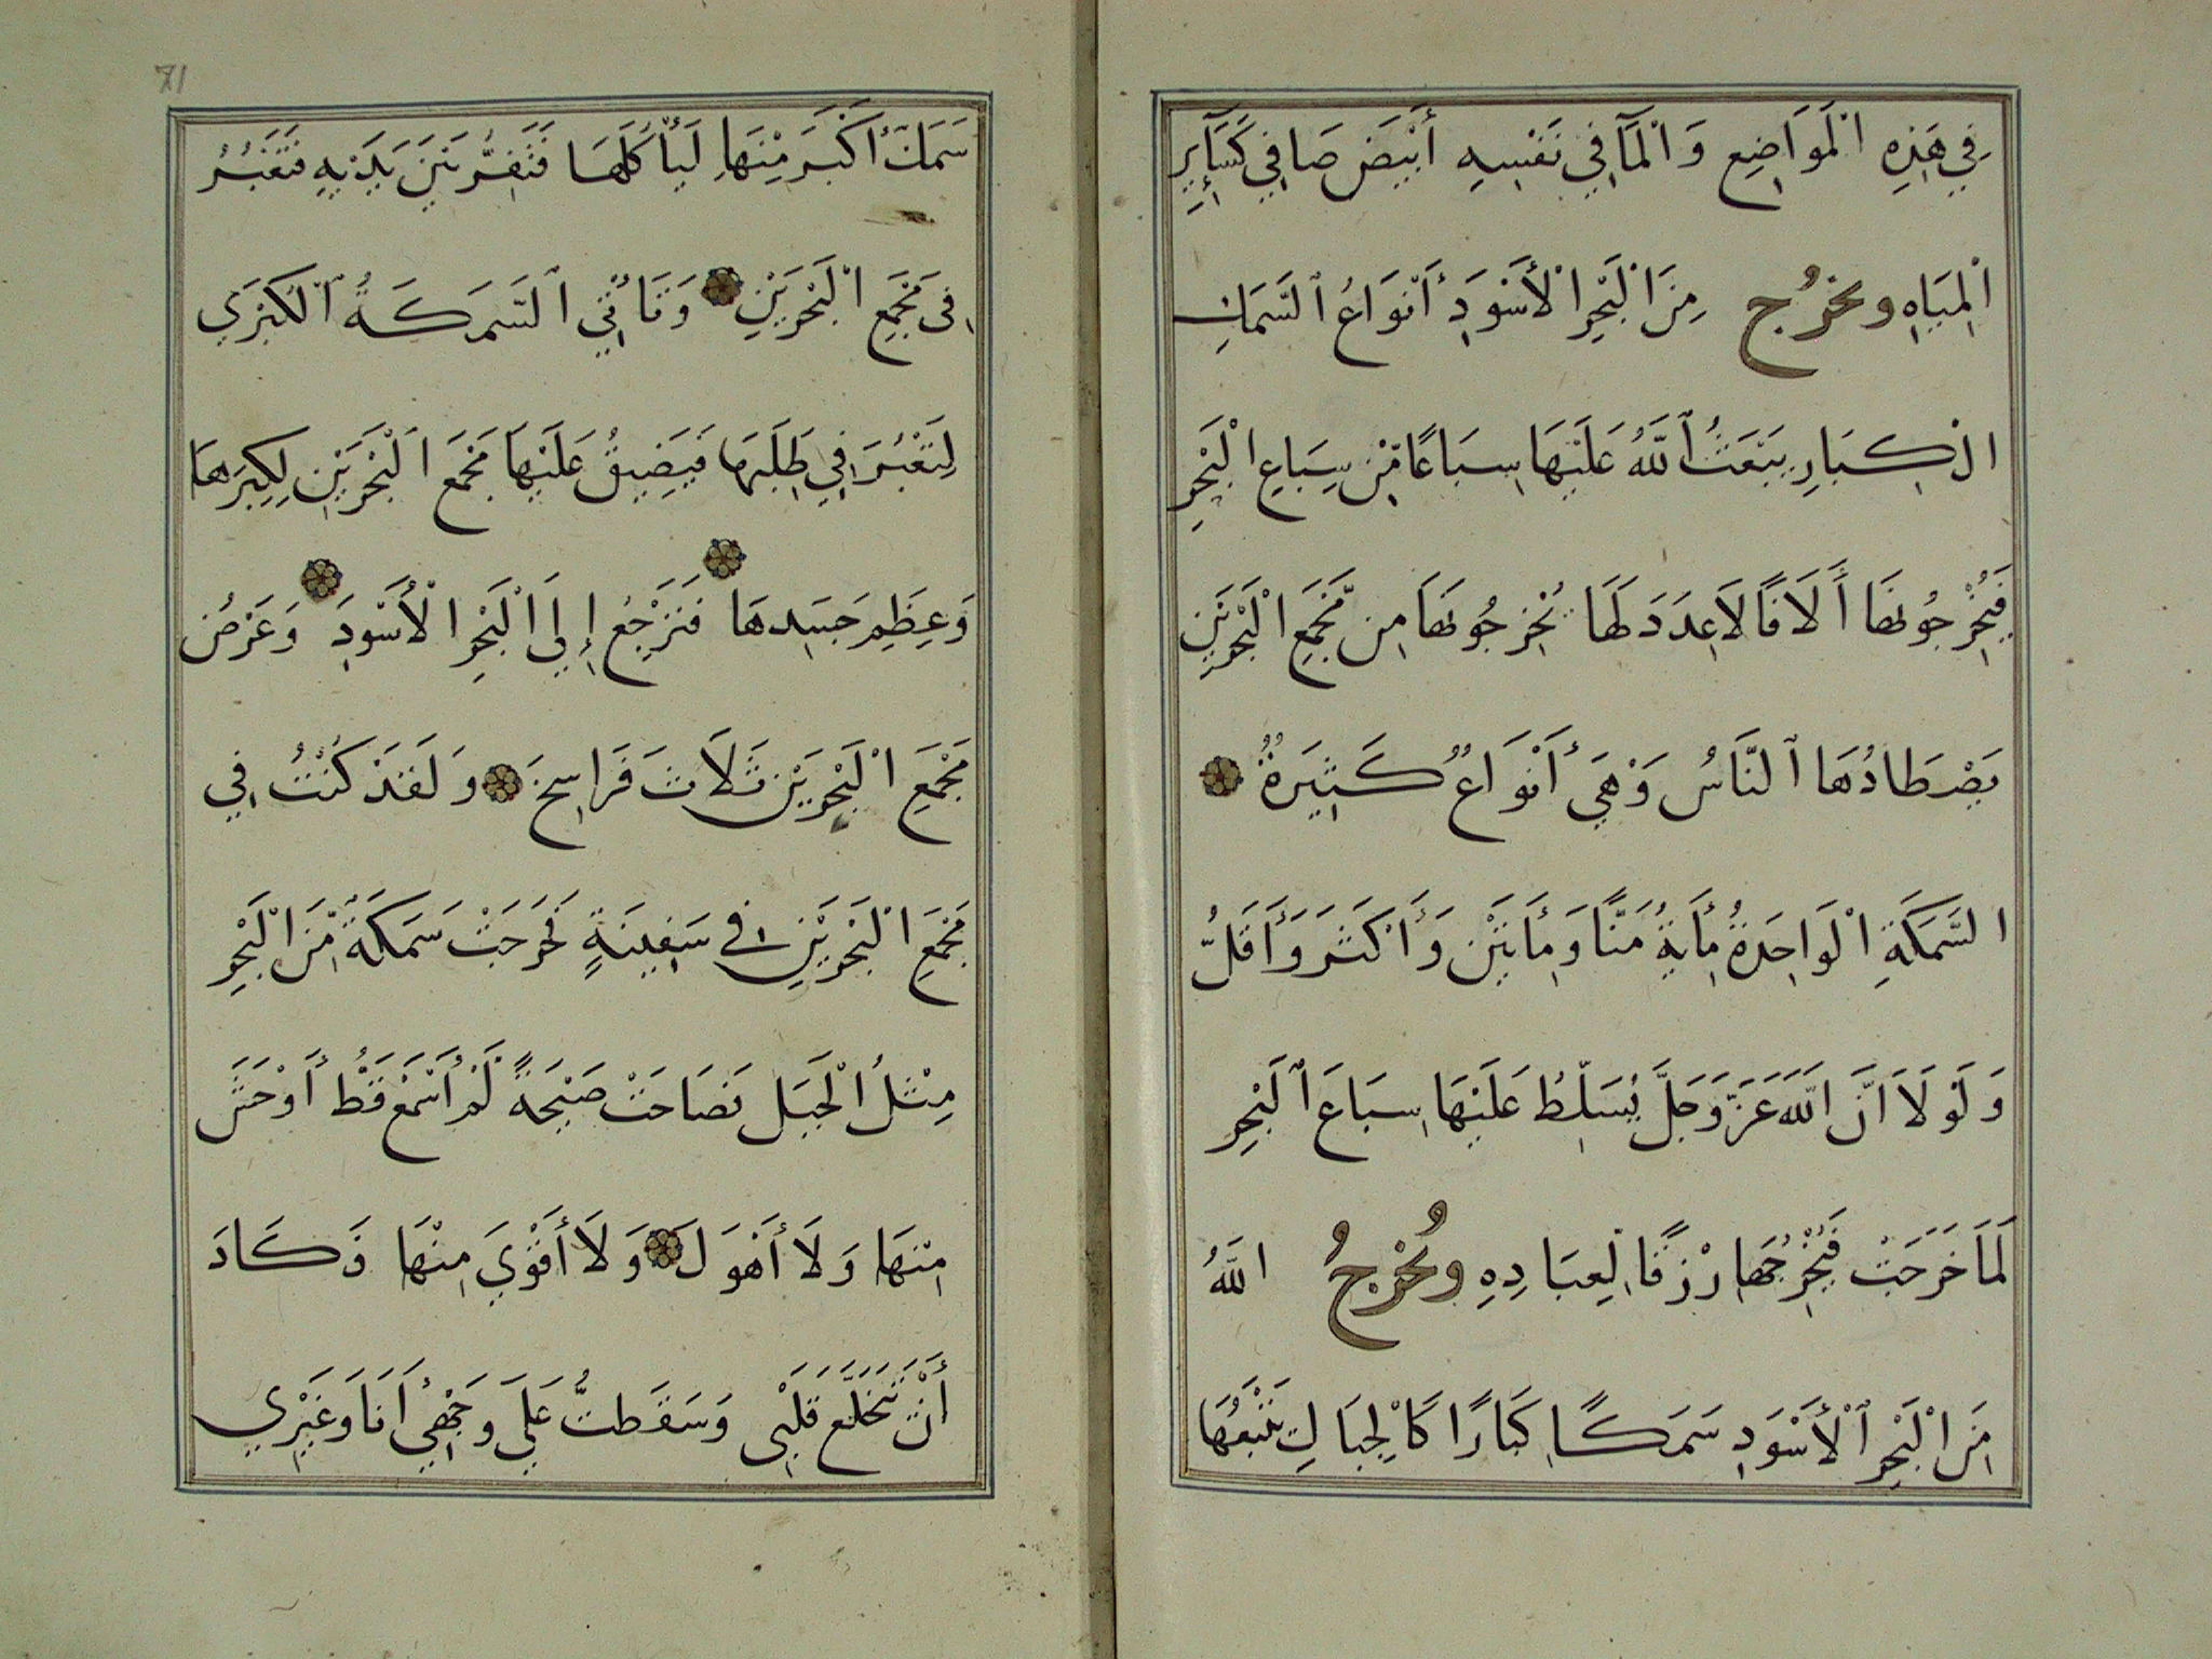 فِي هَذِهِ الْمَوَاضِعِ وَالْمَآ فِي نَفْسِهِ أَبْيَضَ صَافِي كَسَآئِرِ
الْمِيَاهِ ويخرُج مِنَ الْبَحْرِ الْأَسْوَدِ أَنْوَاعُ ٱلسَّمَكِ
الْكِبَارِ يَبْعَثُ ٱللَّهُ عَلَيْهَا سِبَاعًا مِّنْ سِبَاعِ الْبَحْرِ
فَيُخْرِجُونَهَا أَلَافًا لَا عَدَدَ لَهَا يُخْرِجُونَهَا مِن مَّجْمَعِ الْبَحْرَيْنِ
يَصْطَادُهَا ٱلنَّاسُ وَهْيَ أَنْوَاعٌ كَثِيَرةٌ
السَّمَكَةِ الْوَاحِدَةُ مِأَيةُ مَنًّا وَمِأَيتَيْنِ وَأَكْثَرَ وَأَقَلُّ
وَلَوْلَا أَنَّ اللَّهَ عَزَّ وَجَلَّ يُسَلِّطُ عَلَيْهَا سِبَاعَ ٱلْبَحْرِ
لَمَا خَرَجَتْ فَيُخْرِجُهَا رِزْقًا لِعِبَادِهِ ويُخْرِجُ اللَّهُ
مِنَ الْبَحْرِ ٱلْأَسْوَدِ سَمَكًا كِبَارًا كَالْجِبَالِ يَتْبَعُهَا
سَمَكَ أَكْبَرَ مِنْهَا لِيَأْكُلَهَا فَتَفِرُّ بَيْنَ يَدَيْهِ فَتَعْبُرُ
فِى مَجْمَعِ الْبَحْرَيْنِ وَتَأْتِي ٱلسَّمَكَةُ ٱلْكُبْرَي
لِتَعْبُرَ فِي طَلَبِهَا فَيَضِيقُ عَلَيْهَا مَجْمَعَ الْبَحْرَيْنِ لِكِبَرِهَا
وَعِظَمِ جَسَدِهَا فَتَرْجِعُ إِلَي الْبَحْرِ الْأَسْوَدِ وَعَرْضُ
مَجْمَعِ الْبَحْرَيْنِ ثَلَاثَ فَرَاسِخَ وَلَقَدْ كُنْتُ فِي
مَجْمَعِ الْبَحْرَيْنِ فِي سَفِينَةٍ فَخَرَجَتْ سَمَكَةٌ مِنَ الْبَحْرِ
مِثْلُ الْجَبَلِ فَصَاحَتْ صَيْحَةً لَمْ أَسْمَعْ قَطُّ أَوْحَشَ
مِنْهَا وَلَا أَهْوَلَ وَلَا أَقْوَيَ مِنْهَا فَكَادَ
أَنْ يَّنْخَلَعَ قَلْبِى وَسَقَطتُّ عَلَي وَجْهِي أَنَا وَغَيْرِي